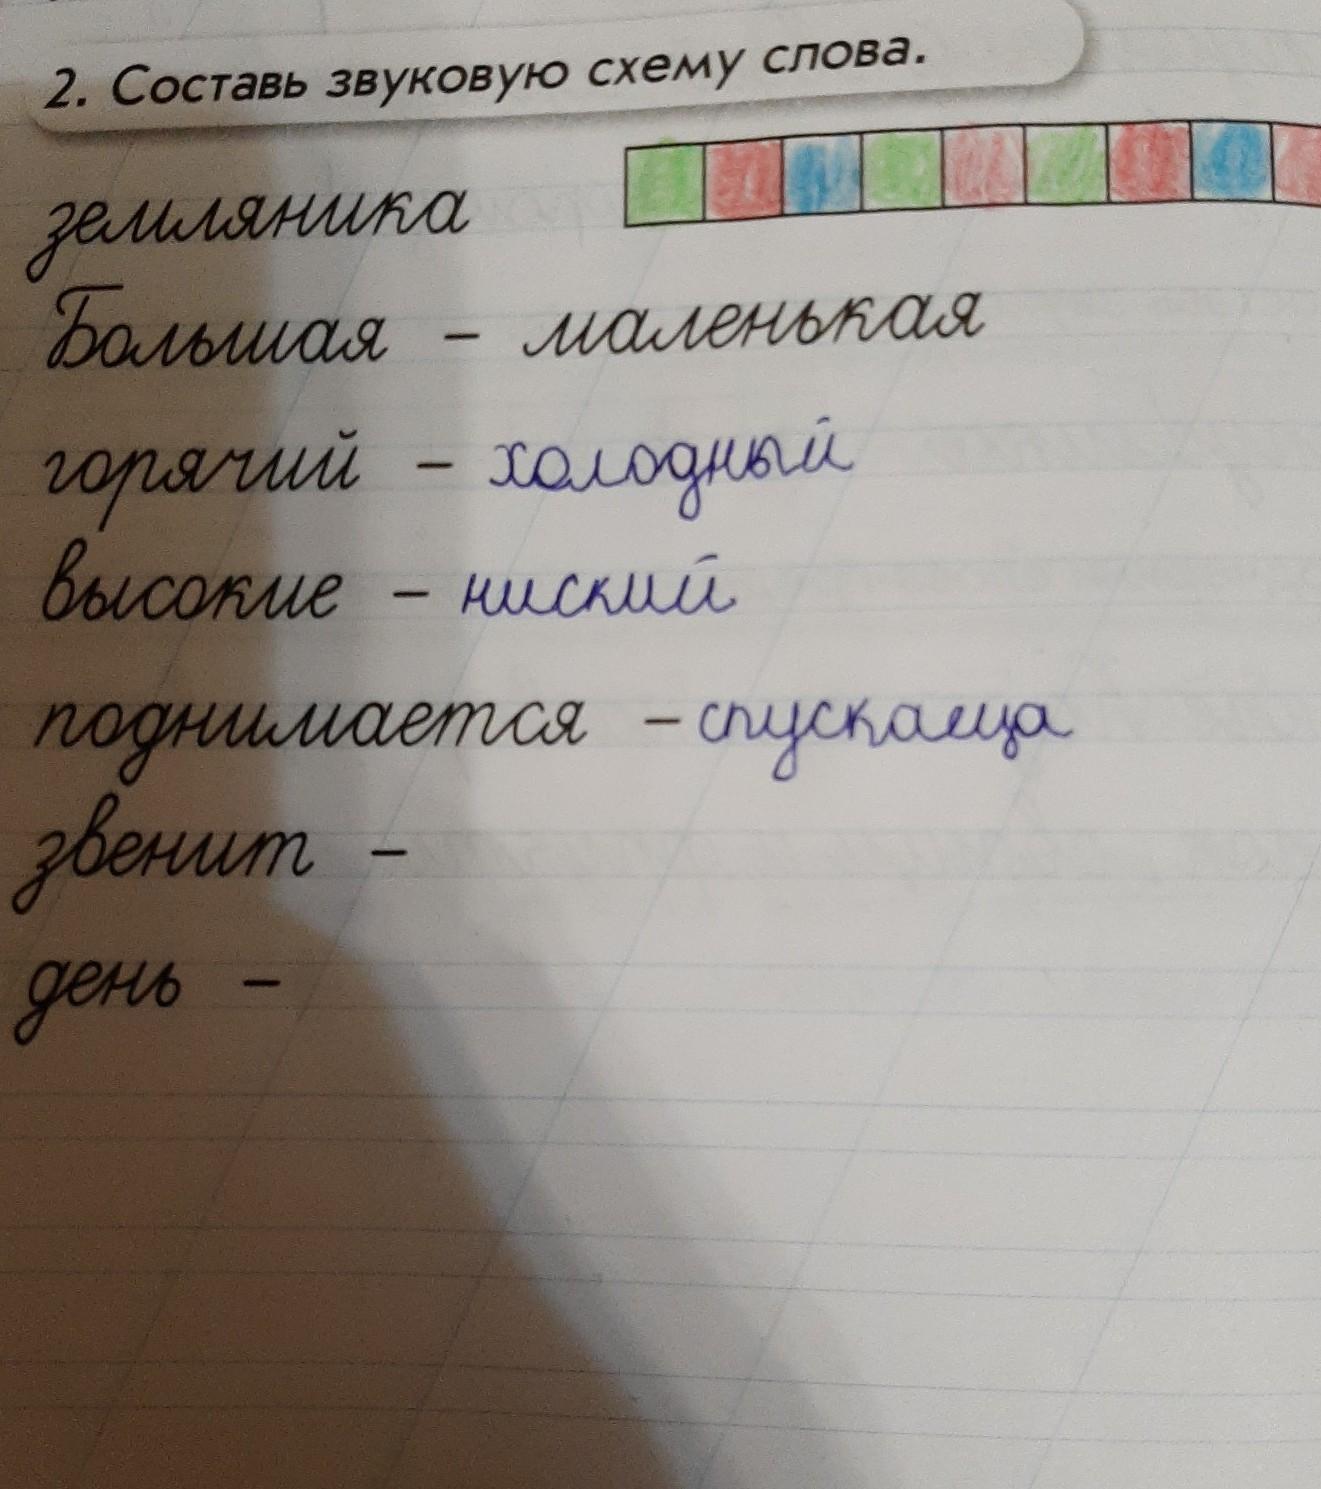 2. Составь звуковую схему слова.
земляника
Большая – маленькая
горячий – холодный
высокие – ниский
поднимается – спускаеца
звенит –
день –